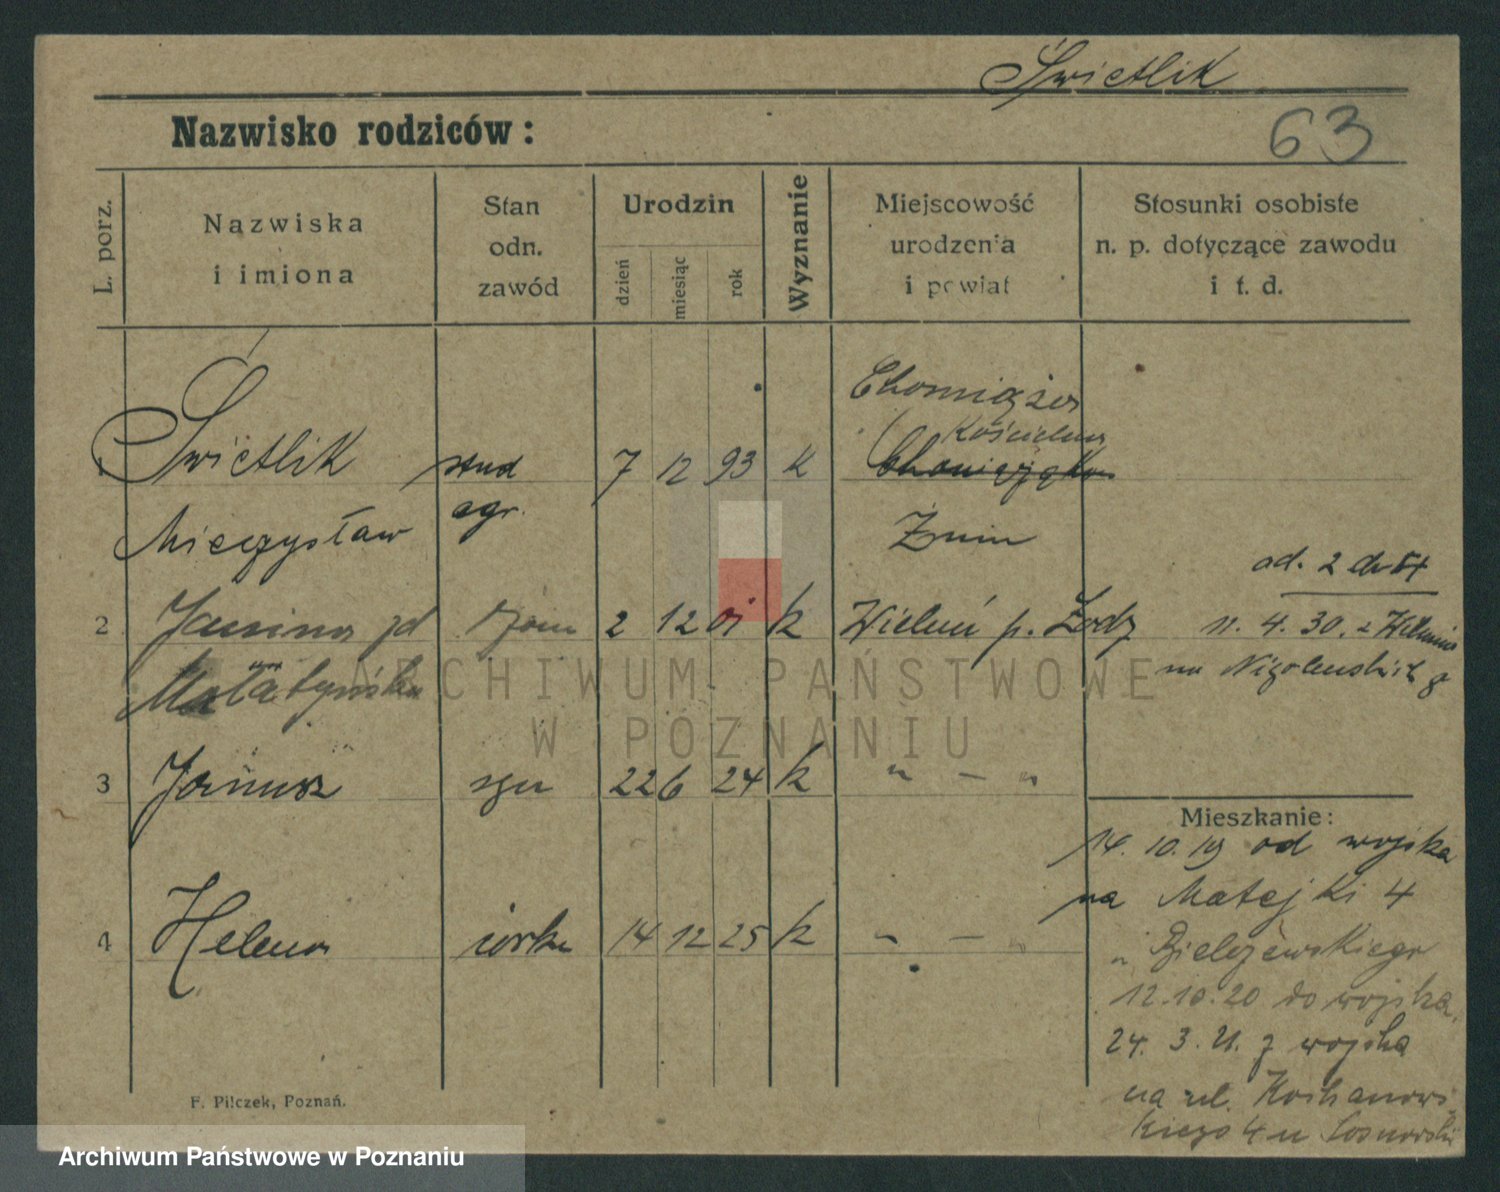 Świetlik
63
Nazwisko rodziców:
L. porz.
Nazwiska
i imiona
Stan
odn.
zawód
Urodzin
dzień
miesiąc
rok
Wyznanie
Miejscowość
urodzenia
i powiat
Stosunki osobiste
n. p. dotyczące zawodu
i t. d.
Chomiąża
Kościelna
1 Świetlik stud 7 12 93 k
Mieczysław agr. Żnin
od. 2 dr 54
2 Janina zd żona 2 12 01 k Wieluń p. Łodz n. 4. 30. z
na
ARCHIWUM PAŃSTWOWE
W POZNANIU
3 Janusz syn 22 6 24 k " — "
Mieszkanie:
14. 10. 19 od wojska
na Matejki 4
4 Helena córka 14 12 25 k " — "
u Bielczewskiego
12.10.20 do wojska,
24. 3. 21. z wojska
na ul. Kochanows
kiego 4 u Sosnowski
F. Pilczek, Poznań.
Archiwum Państwowe w Poznaniu